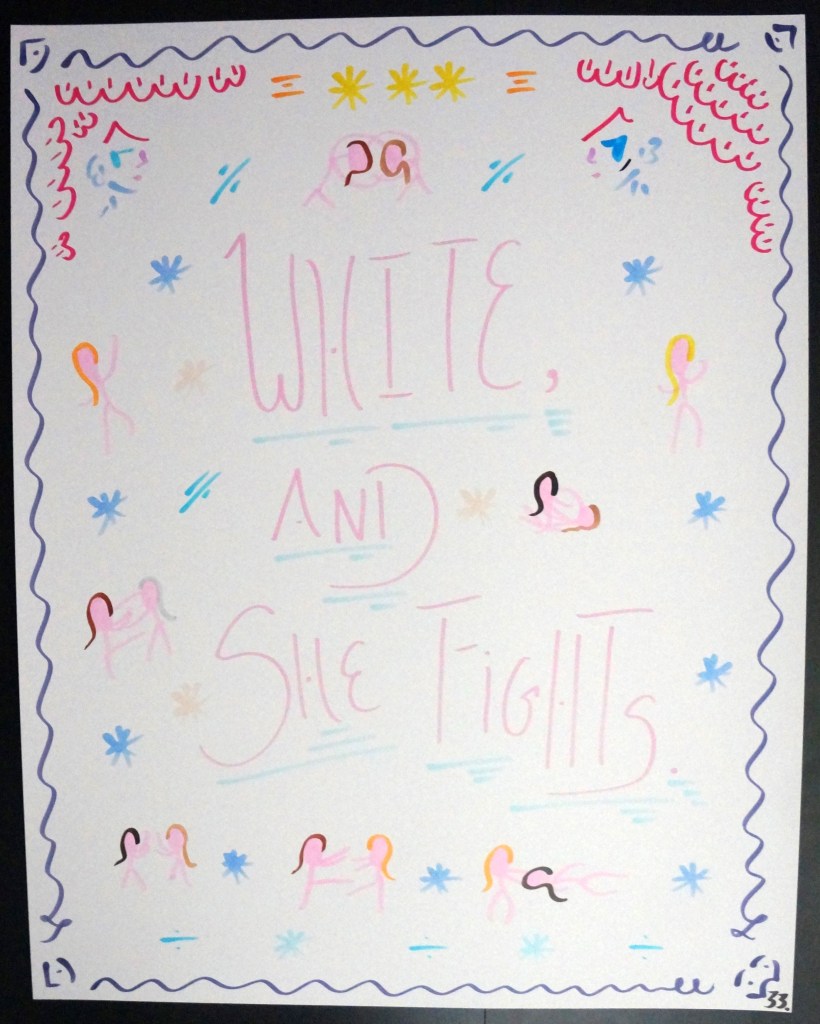 WHITE,
AND
SHE FiGHTS.
33.